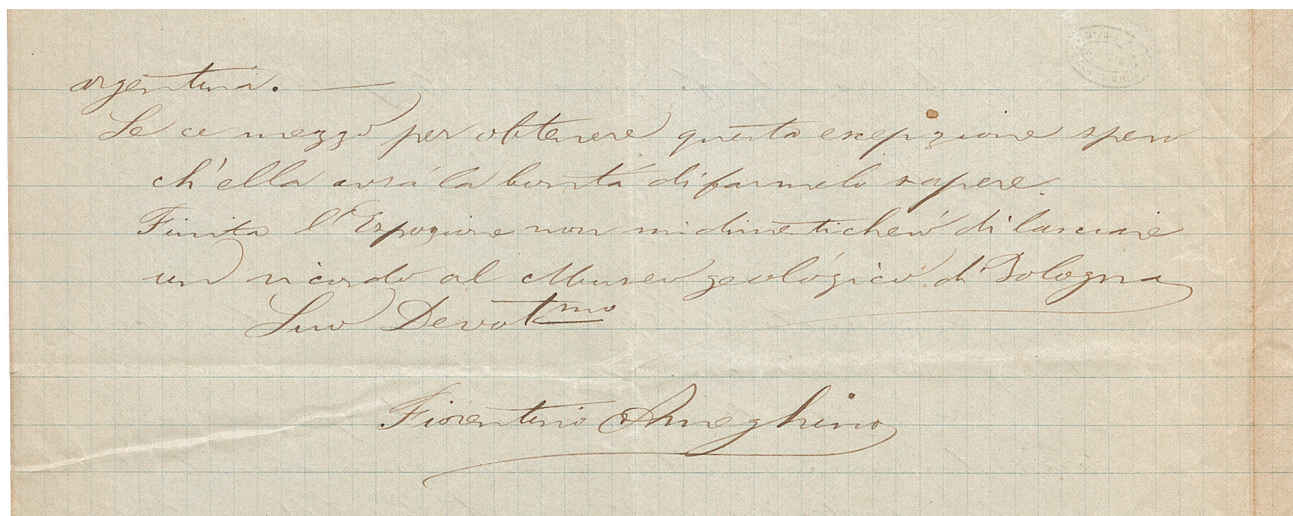 argentina.
Se ce mezzo per obtenere questa escepzione spero
ch'ella avrá la bontá di farmelo sapere.
Finita l'Espozione non mi dimetticheró di lasciare
un ricordo al Museo geológico di Bologna
Suo Devotmo
Fiorentino Ameghino